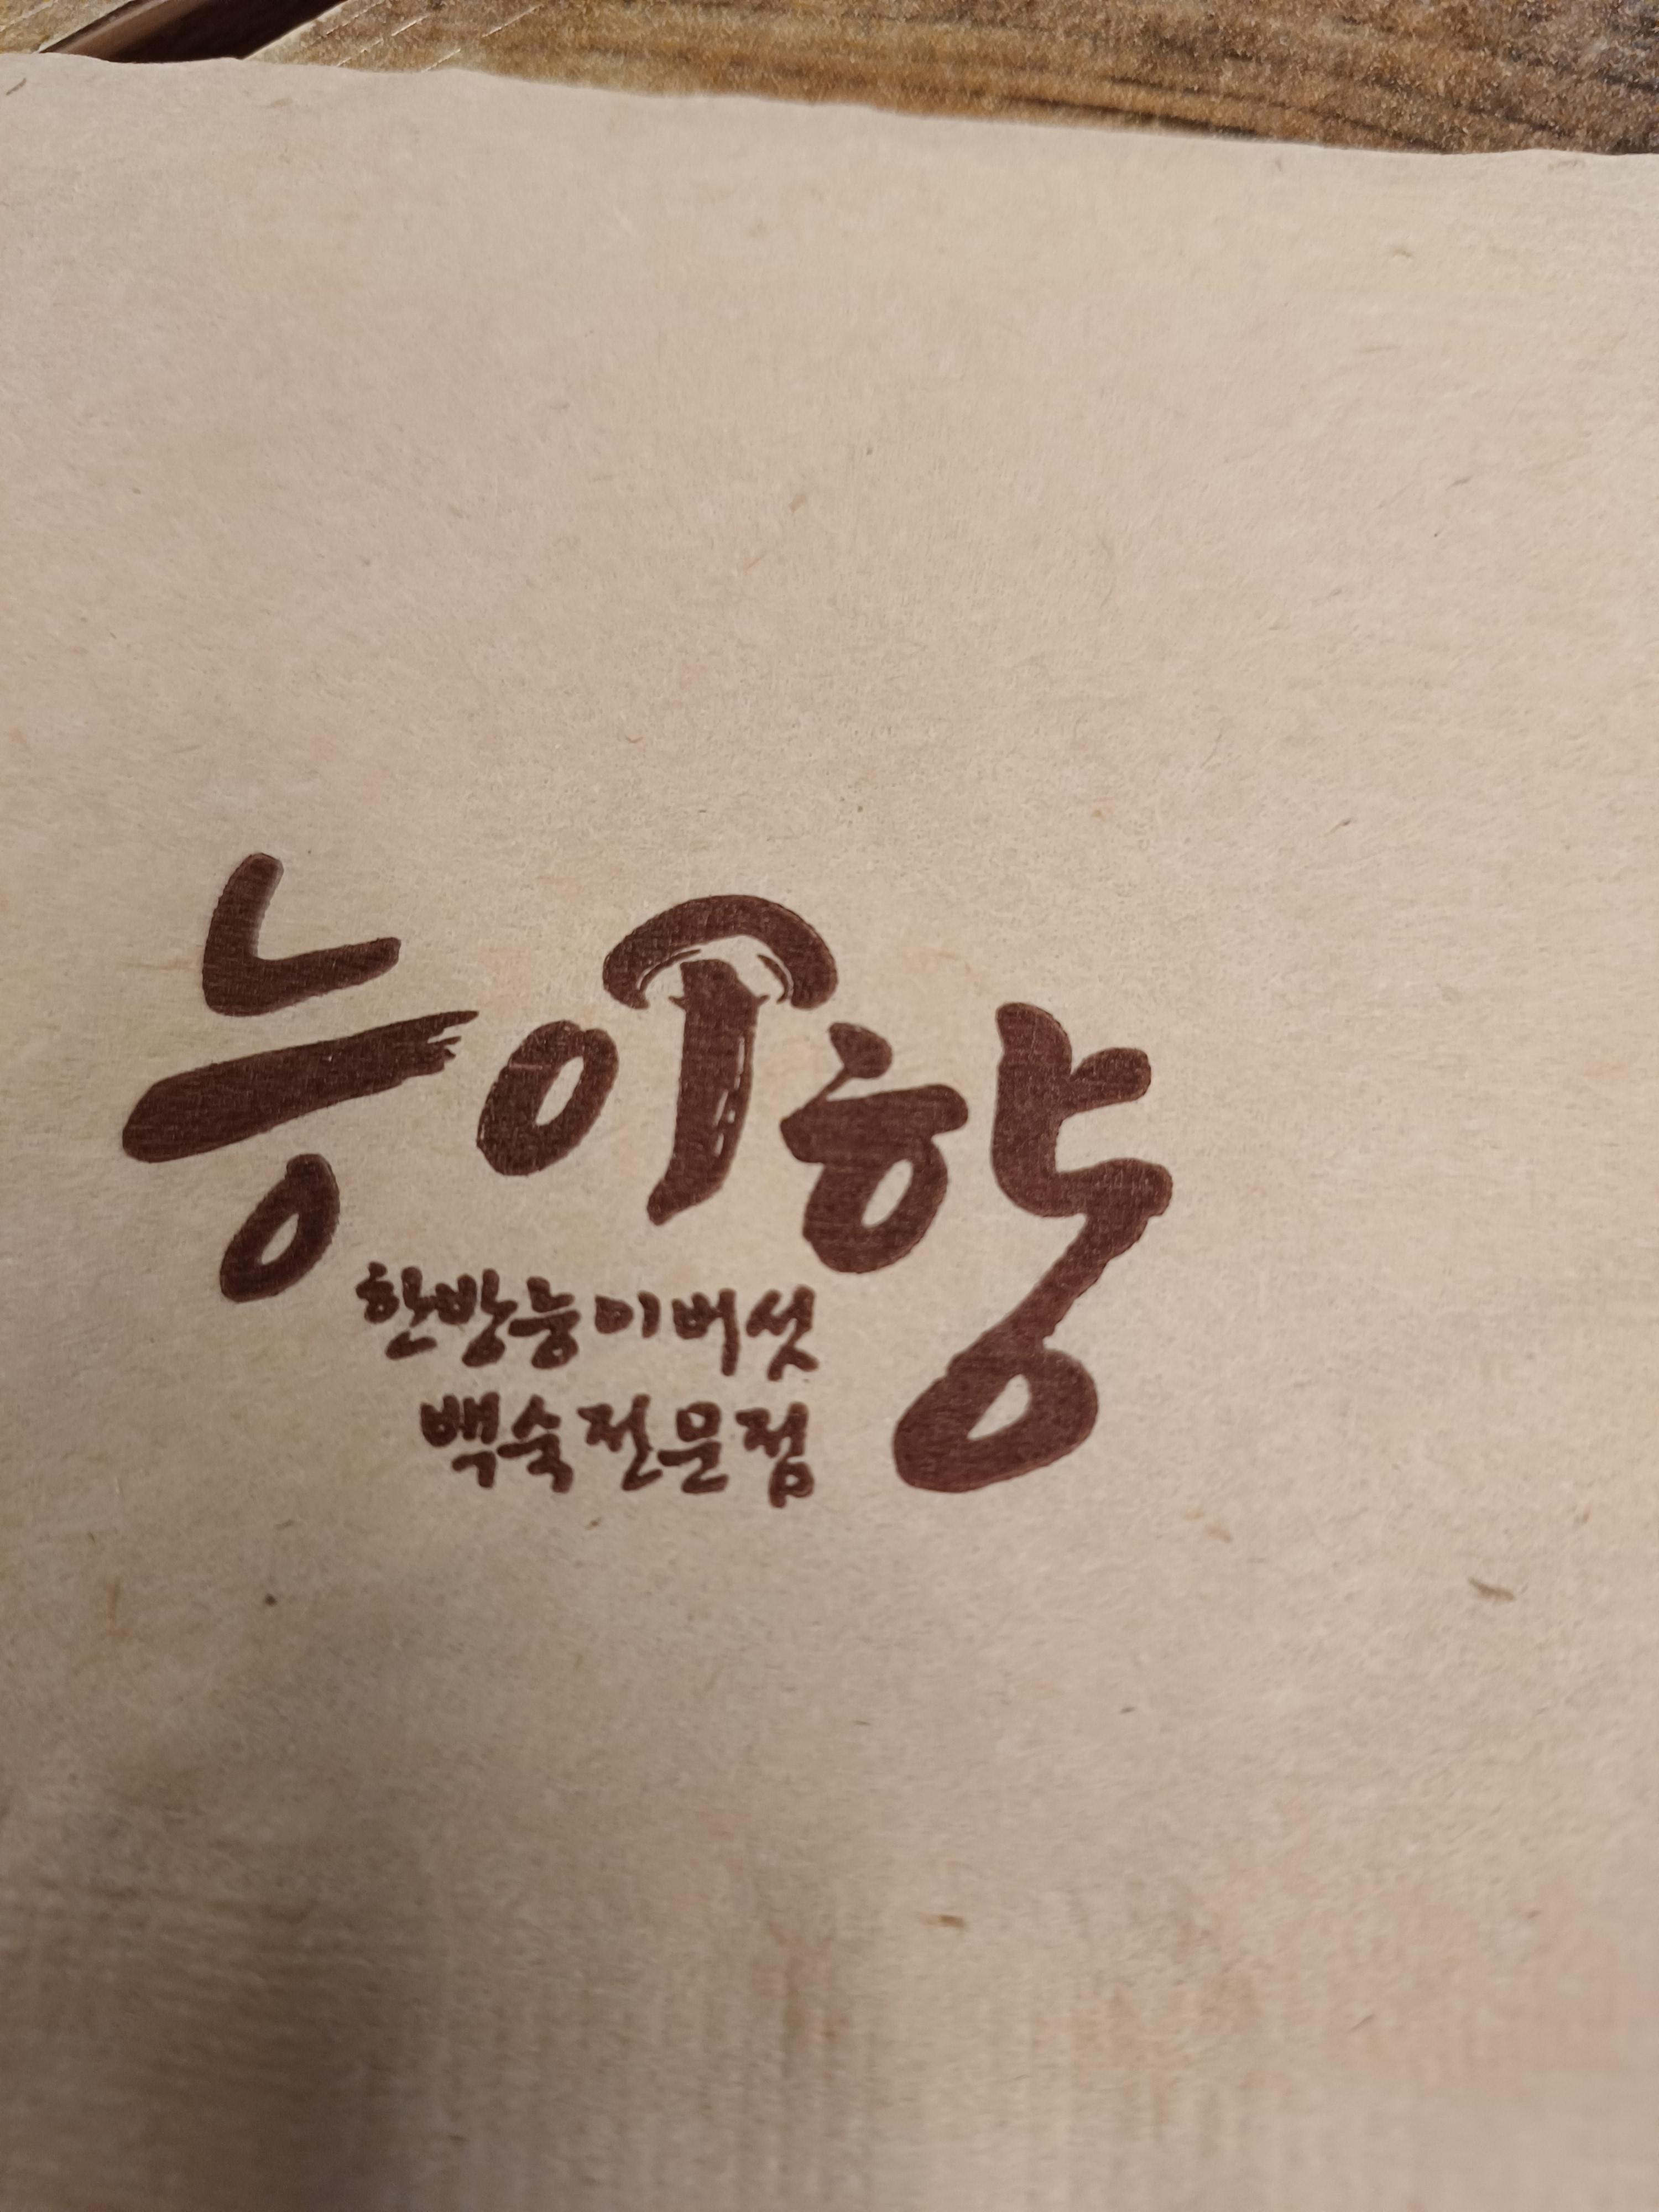 능이향
한방능이버섯
백숙전문점